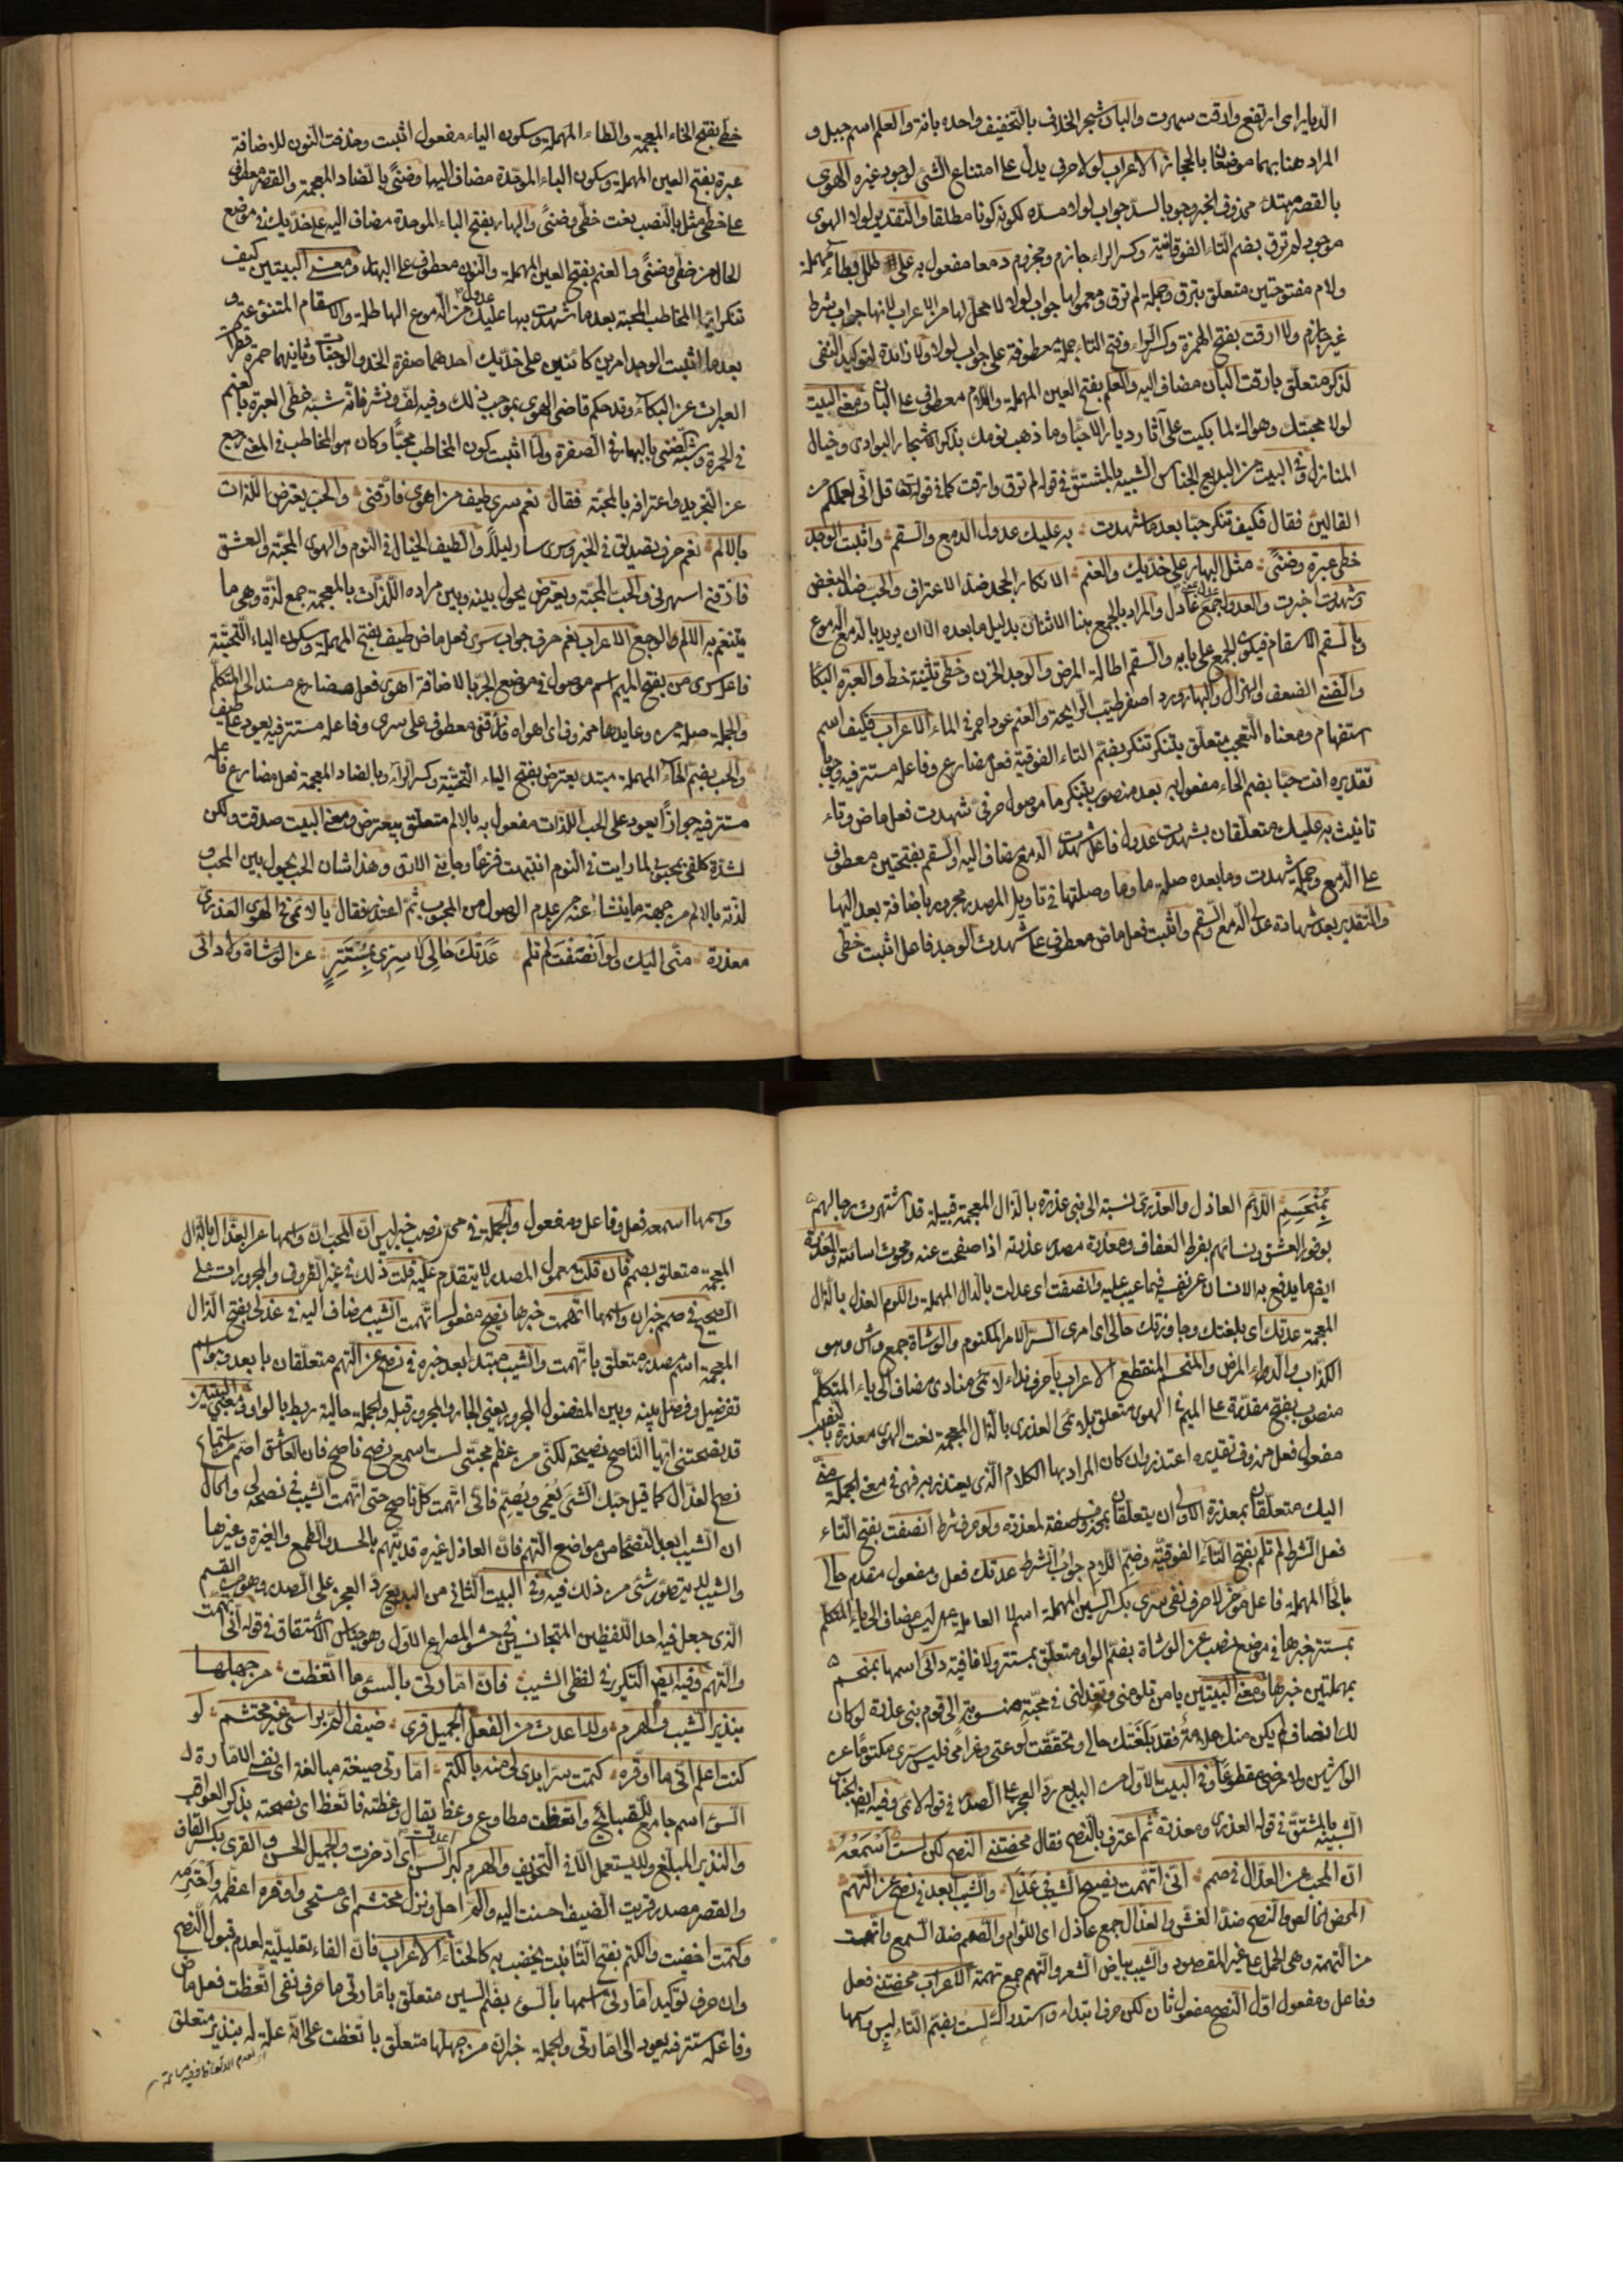 الديار اى ارتفع وارقت سهرت والبان شجر الخلاف بالتخفيف واحده بانة والعلم اسم جبل و
المراد هنا بهما موضعان بالحجاز الاعراب لولا حرف يدل على امتناع الشئ لوجود غيره الهوى
بالقصر مبتدا محذوف الخبر وجوبا لسد جواب لولا مسده لكونه كونا مطلقا والتقدير لولا الهوى
موجود لم ترق بضم التاء الفوقانية وكسر الراء جازم ومجزوم دمعا مفعول به على طلل بطاء مهملة
ولام مفتوحتين متعلق بترق وجملة لم ترق ومعمولها جواب لولا لا محل لها من الاعراب لانها جواب شرط
غير جازم ولا ارقت بفتح الهمزة وكسر الراء وفتح التاء جملة معطوفة على جواب لولا ولا زائدة لتوكيد النفى
لذكر متعلق بارقت البان مضاف اليه والعلم بفتح العين المهملة واللام معطوف على البان ومعنى البيت
لولا محبتك وهواك لما بكيت على آثار ديار الاحبا وما ذهب نومك بذكر اشجار البوادى وخيال
المنازل وفى البيت من البديع الجناس الشبيه بالمشتق فى قوله لم ترق وارقت كما فى قوله تعالى قل انى لعملكم من
القالين فقال فكيف تنكر حبا بعد ما شهدت به عليك عدول الدمع والسقم واثبت الوجد
خطى عبرة وضنى مثل البهار على خديك والعنم الانكار الجحد ضد الاعتراف والحب ضد البغض
وشهدت اخبرت والعدول جمع عادل والمراد بالجمع هنا الاثنان بدليل ما بعده الا ان يريد بالدمع الدموع
وبالسقم الاسقام فيكون الجمع على بابه والسقم اطالة المرض والوجد الحزن وخطى تثنية خط والعبرة البكا
والضنى الضعف والهزال والبهار ورد اصفر طيب الرايحة والعنم عود احمر فى الماء الاعراب فكيف اسم
استفهام ومعناه التعجب متعلق بتنكر تنكر بضم التاء الفوقية فعل مضارع وفاعله مستتر فيه وجوبا
تقديره انت حبا بضم الحاء مفعول به بعد منصوب بتنكر ما موصول حرفى شهدت فعل ماض وتاء
تانيث به عليك متعلقان بشهدت عدول فاعل شهدت الدمع مضاف اليه والسقم بفتحتين معطوف
على الدمع وجملة شهدت وما بعده صلة ما وما وصلتها فى تاويل المصدر مجرور باضافة بعد اليها
والتقدير بعد شهادة عدل الدمع والسقم واثبت فعل ماض معطوف على شهدت الوجد فاعل اثبت خطى
خطى بفتح الخاء المعجمة والطاء المهملة وسكون الياء مفعول اثبت وحذفت النون للاضافة
عبرة بفتح العين المهملة وسكون الباء الموحدة مضاف اليها وضنى بالضاد المعجمة والقصر معطوف
على خطى مثل بالنصب نعت خطى وضنى والبهار بفتح الباء الموحدة مضاف اليه على خديك فى موضع
الحال من خطى وضنى والعنم بفتح العين المهملة والنون معطوف على البهار ومعنى البيتين كيف
تنكر ايها المخاطب المحبة بعد ما شهدت بها عليك عدول من الدموع الهاطلة والاسقام المتنوعة و
بعد ما اثبت الوجد امرين كائنين على خديك احدهما صفرة الخد والوجنات وثانيهما حمرة قطرات
العبرات عن البكاء وقد حكم قاضى الهوى بموجب ذلك وفيه لف ونشر فانه شبه خطى العبرة بالعنم
فى الحمرة وشبه ضنى بالبهار فى الصفرة ولما اثبت كون المخاطب محبا وكان هو المخاطب فى المعنى رجع
عن التجريد واعترافه بالمحبة فقال نعم سرى طيف من اهوى فارقنى والحب يعترض اللذات
بالالم نعم حرف تصديق فى الخبر وسرى سار ليلا والطيف الخيال فى النوم والهوى المحبة والعشق
فارقنى اسهرنى والحب المحبة ويعترض يحول بينه وبين مراده اللذات بالمعجمة جمع لذة وهى ما
يتنعم به الالم والوجع الاعراب نعم حرف جواب سرى فعل ماض طيف بفتح المهملة وسكون الياء التحتية
فاعل سرى من بفتح الميم اسم موصول فى موضع الجر بالاضافة اهوى فعل مضارع مسند الى المتكلم
والجملة صلة من وعايدها محذوف اى اهواه فارقنى معطوف على سرى وفاعله مستتر فيه يعود على طيف
والحب بضم الحاء المهملة مبتدا يعترض بفتح الياء التحتية وكسر الراء وبالضاد المعجمة فعل مضارع فاعله
مستتر فيه جوازا يعود على الحب اللذات مفعول به بالالم متعلق بيعترض ومعنى البيت صدقت ولكن
لشدة كلفى بمحبوبى لما رايت فى النوم انتبهت فزعا وجانى الارق وهذا شان الحب يحول بين المحب و
لذته بالالم من جهة ما ينشا عنه من عدم الوصول من المحبوب ثم اعتذر فقال يا لائمى فى الهوى العذرى
معذرة منى اليك ولو انصفت لم تلم عدتك حالى لا سرى بمستتر عن الوشاة ولا دائى
بمنحسم اللائم العاذل والعذرى نسبة الى بنى عذرة بالذال المعجمة قبيلة قد اشتهرت رجالهم
بوفور العشق ونسائهم بفرط العفاف ومعذرة مصدر عذرته اذا صفحت عنه ومحوت اسائته والمعذرة
ايضا ما يدفع به الانسان عن نفسه فيما عيب عليه وانصفت اى عدلت بالدال المهملة واللوم العذل بالذال
المعجمة عدتك اى بلغتك وجاوزتك حالى اى امرى السر الامر المكتوم والوشاة جمع واش وهو
الكذاب والداء المرض والمنحسم المنقطع الاعراب يا حرف نداء لائمى منادى مضاف الى ياء المتكلم
منصوب بفتح مقدرة على الميم فى الهوى متعلق بلائمى العذرى بالذال المعجمة نعت الهوى معذرة بالنصب
مفعول فعل محذوف تقديره اعتذر وان كان المراد بها الكلام الذى يعتذر به فهى فى معنى الجملة منى
اليك متعلقان بمعذرة الاولى ان يتعلقان بمحذوف صفة لمعذرة ولو حرف شرط انصفت بفتح التاء
فعل الشرط لم تلم بفتح التاء الفوقية وضم اللام جواب الشرط عدتك فعل ومفعول مقدم حالى
بالحا المهملة فاعل مؤخر لا حرف نفى سرى بكسر السين المهملة اسم لا العاملة عمل ليس مضاف الى ياء المتكلم
بمستتر خبرها فى موضع نصب عن الوشاة بضم الواو متعلق بمستتر ولا نافية دائى اسمها بمنحسم
بمهملتين خبرها ومعنى البيتين يا من تلومنى وتعذلنى فى محبة منسوبة الى قوم بنى عذرة لو كان
لك انصاف لم يكن منك ملامة فقد بلغتك حالى وتحققت لوعتى وغرامى فليس سرى مكتوما عن
الواشين ولا مرضى مقطوعا وفى البيت الاول من البديع رد العجز على الصدر فى قوله لائمى وفيه ايضا الجناس
الشبيه بالمشتق فى قوله العذرى ومعذرة ثم اعترف بالنصح فقال محضتنى النصح لكن لست اسمعه
ان المحب عن العذال فى صمم انى اتهمت نصيح الشيب فى عذلى والشيب ابعد فى نصح عن التهم
المحض الخالص والنصح ضد الغش والعذال جمع عاذل اى اللوام والصمم ضد السمع واتهمت
من التهمة وهى الحمل على غير المقصود والشيب بياض الشعر والتهم جمع تهمة الاعراب محضتنى فعل
وفاعل ومفعول اول النصح مفعول ثان لكن حرف ابتداء واستدراك لست بضم التاء ليس واسمها
واسمها اسمعه فعل وفاعل ومفعول والجملة فى محل نصب خبر ليس ان المحب ان واسمها عن العذال بالذال
المعجمة متعلق بصمم فان قلت معمول المصدر لا يتقدم عليه قلت ذلك فى غير الظروف والمجرورات على
الصحيح فى صمم خبر ان انى ان واسمها اتهمت خبرها نصيح مفعول اتهمت الشيب مضاف اليه فى عذلى بفتح الذال
المعجمة اسم مصدر متعلق باتهمت والشيب مبتدا ابعد خبره فى نصح عن التهم متعلقان بابعد وهو اسم
تفضيل وفصل بينه وبين المفضول المجرور يعنى الجار والمجرور قبله والجملة حالية ربط بالواو ومعنى البيتين
قد نصحتنى ايها الناصح نصيحة لكنى من عظم محبتى لست اسمع نصح ناصح فان العاشق اصم من استماع
نصح العذال كما قيل حبك الشئ يعمى ويصم فانى اتهمت كل ناصح حتى اتهمت الشيب فى نصحه لى والحال
ان الشيب ابعد النصحا من مواضع التهم فان العاذل غيره قد يتهم بالحسد والطمع والغيرة وغيرها
والشيب لا يتصور شئ من ذلك فيه وفى البيت الثانى من البديع رد العجز على الصدر وهو من القسم
الذى جعل فيه احد اللفظين المتجانسين فى حشو المصراع الاول وهو جناس الاشتقاق فى قوله انى اتهمت
والتهم وفيه ايضا التكرير فى لفظى الشيب فان امارتى بالسوء ما اتعظت من جهلها
بنذير الشيب والهرم ولا اعدت من الفعل الجميل قرى ضيف الم براسى غير محتشم لو
كنت اعلم انى ما اوقره كتمت سرا بدى لى منه بالكتم امارتى صيغة مبالغة اى نفسى الامارة
السوء اسم جامع للقبائح واتعظت مطاوع وعظ يقال وعظته فاتعظ اى نصحته بذكر العواقب
والنذير المبلغ ولا يستعمل الا فى التخويف والهرم كبر السن اعدت اى ادخرت والجميل الحسن والقرى بكسر القاف
والقصر مصدر قريت الضيف احسنت اليه والم حل ونزل محتشم اى مستحى واوقره اعظمه واحترمه
وكتمت اخفيت والكتم بفتح التا نبت يخضب به كالحناء الاعراب فان الفاء تعليلية لعدم قبول النصح
وان حرف توكيد امارتى اسمها بالسوء بضم السين متعلق بامارتى ما حرف نفى اتعظت فعل ماض
وفاعله مستتر فيه يعود الى امارتى والجملة خبر ان من جهلها متعلق باتعظت على انه علة له بنذير متعلق